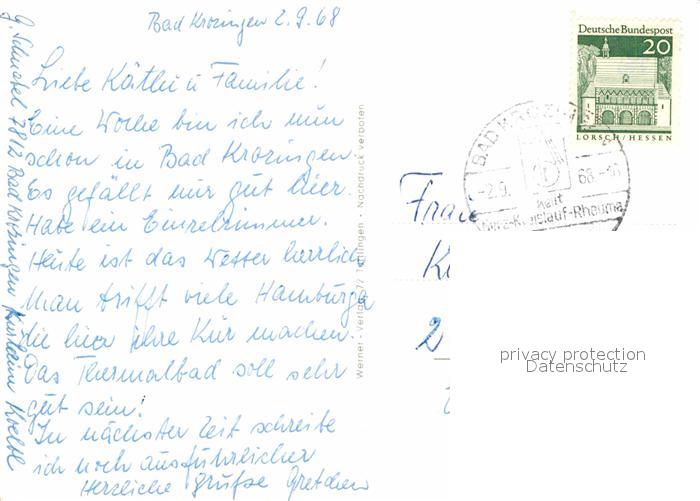 Bad Krozingen 2.9.68
Liebe Käthe u Familie!
Eine Woche bin ich nun
schon in Bad Krozingen.
Es gefällt mir gut hier.
Habe ein Einzelzimmer.
Heute ist das Wetter herrlich
Man trifft viele Hamburger
die hier ihre Kur machen.
Das Thermalbad soll sehr
gut sein!
In nächster Zeit schreibe
ich noch ausführlicher
Herzliche Grüße Gretchen
G. Schnabel 7812 Bad Krozingen Kurheim
Werner-Verlag 72 Tuttlingen · Nachdruck verboten
Deutsche Bundespost
20
LORSCH/HESSEN
BAD KROZINGEN
-2.9. 68.-16
heilt
Herz-Kreislauf-Rheuma
Frau
2
privacy protection
Datenschutz